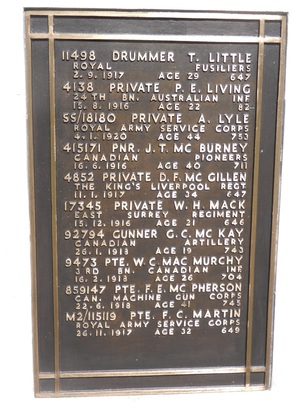 11498 DRUMMER T. LITTLE
ROYAL FUSILIERS
2.9.1917 AGE 29 647
4138 PRIVATE P.E. LIVING
24TH BN. AUSTRALIAN INF
15.8.1916 AGE 22 82
SS/18180 PRIVATE A. LYLE
ROYAL ARMY SERVICE CORPS
4.1.1920 AGE 44 753
415171 PNR. J.T. MC BURNEY
CANADIAN PIONEERS
16.6.1916 AGE 40 711
4852 PRIVATE D.F. MC GILLEN
THE KING'S LIVERPOOL REGT
11.1.1917 AGE 34 647
17345 PRIVATE W.H. MACK
EAST SURREY REGIMENT
15.12.1916 AGE 21 646
92794 GUNNER G.C. MC KAY
CANADIAN ARTILLERY
26.1.1918 AGE 19 743
9473 PTE. W.C. MAC MURCHY
3RD BN. CANADIAN INF
16.2.1918 AGE 26 704
859147 PTE. F.E. MC PHERSON
CAN. MACHINE GUN CORPS
22.6.1918 AGE 41 745
M2/115119 PTE. F.C. MARTIN
ROYAL ARMY SERVICE CORPS
26.11.1917 AGE 32 649